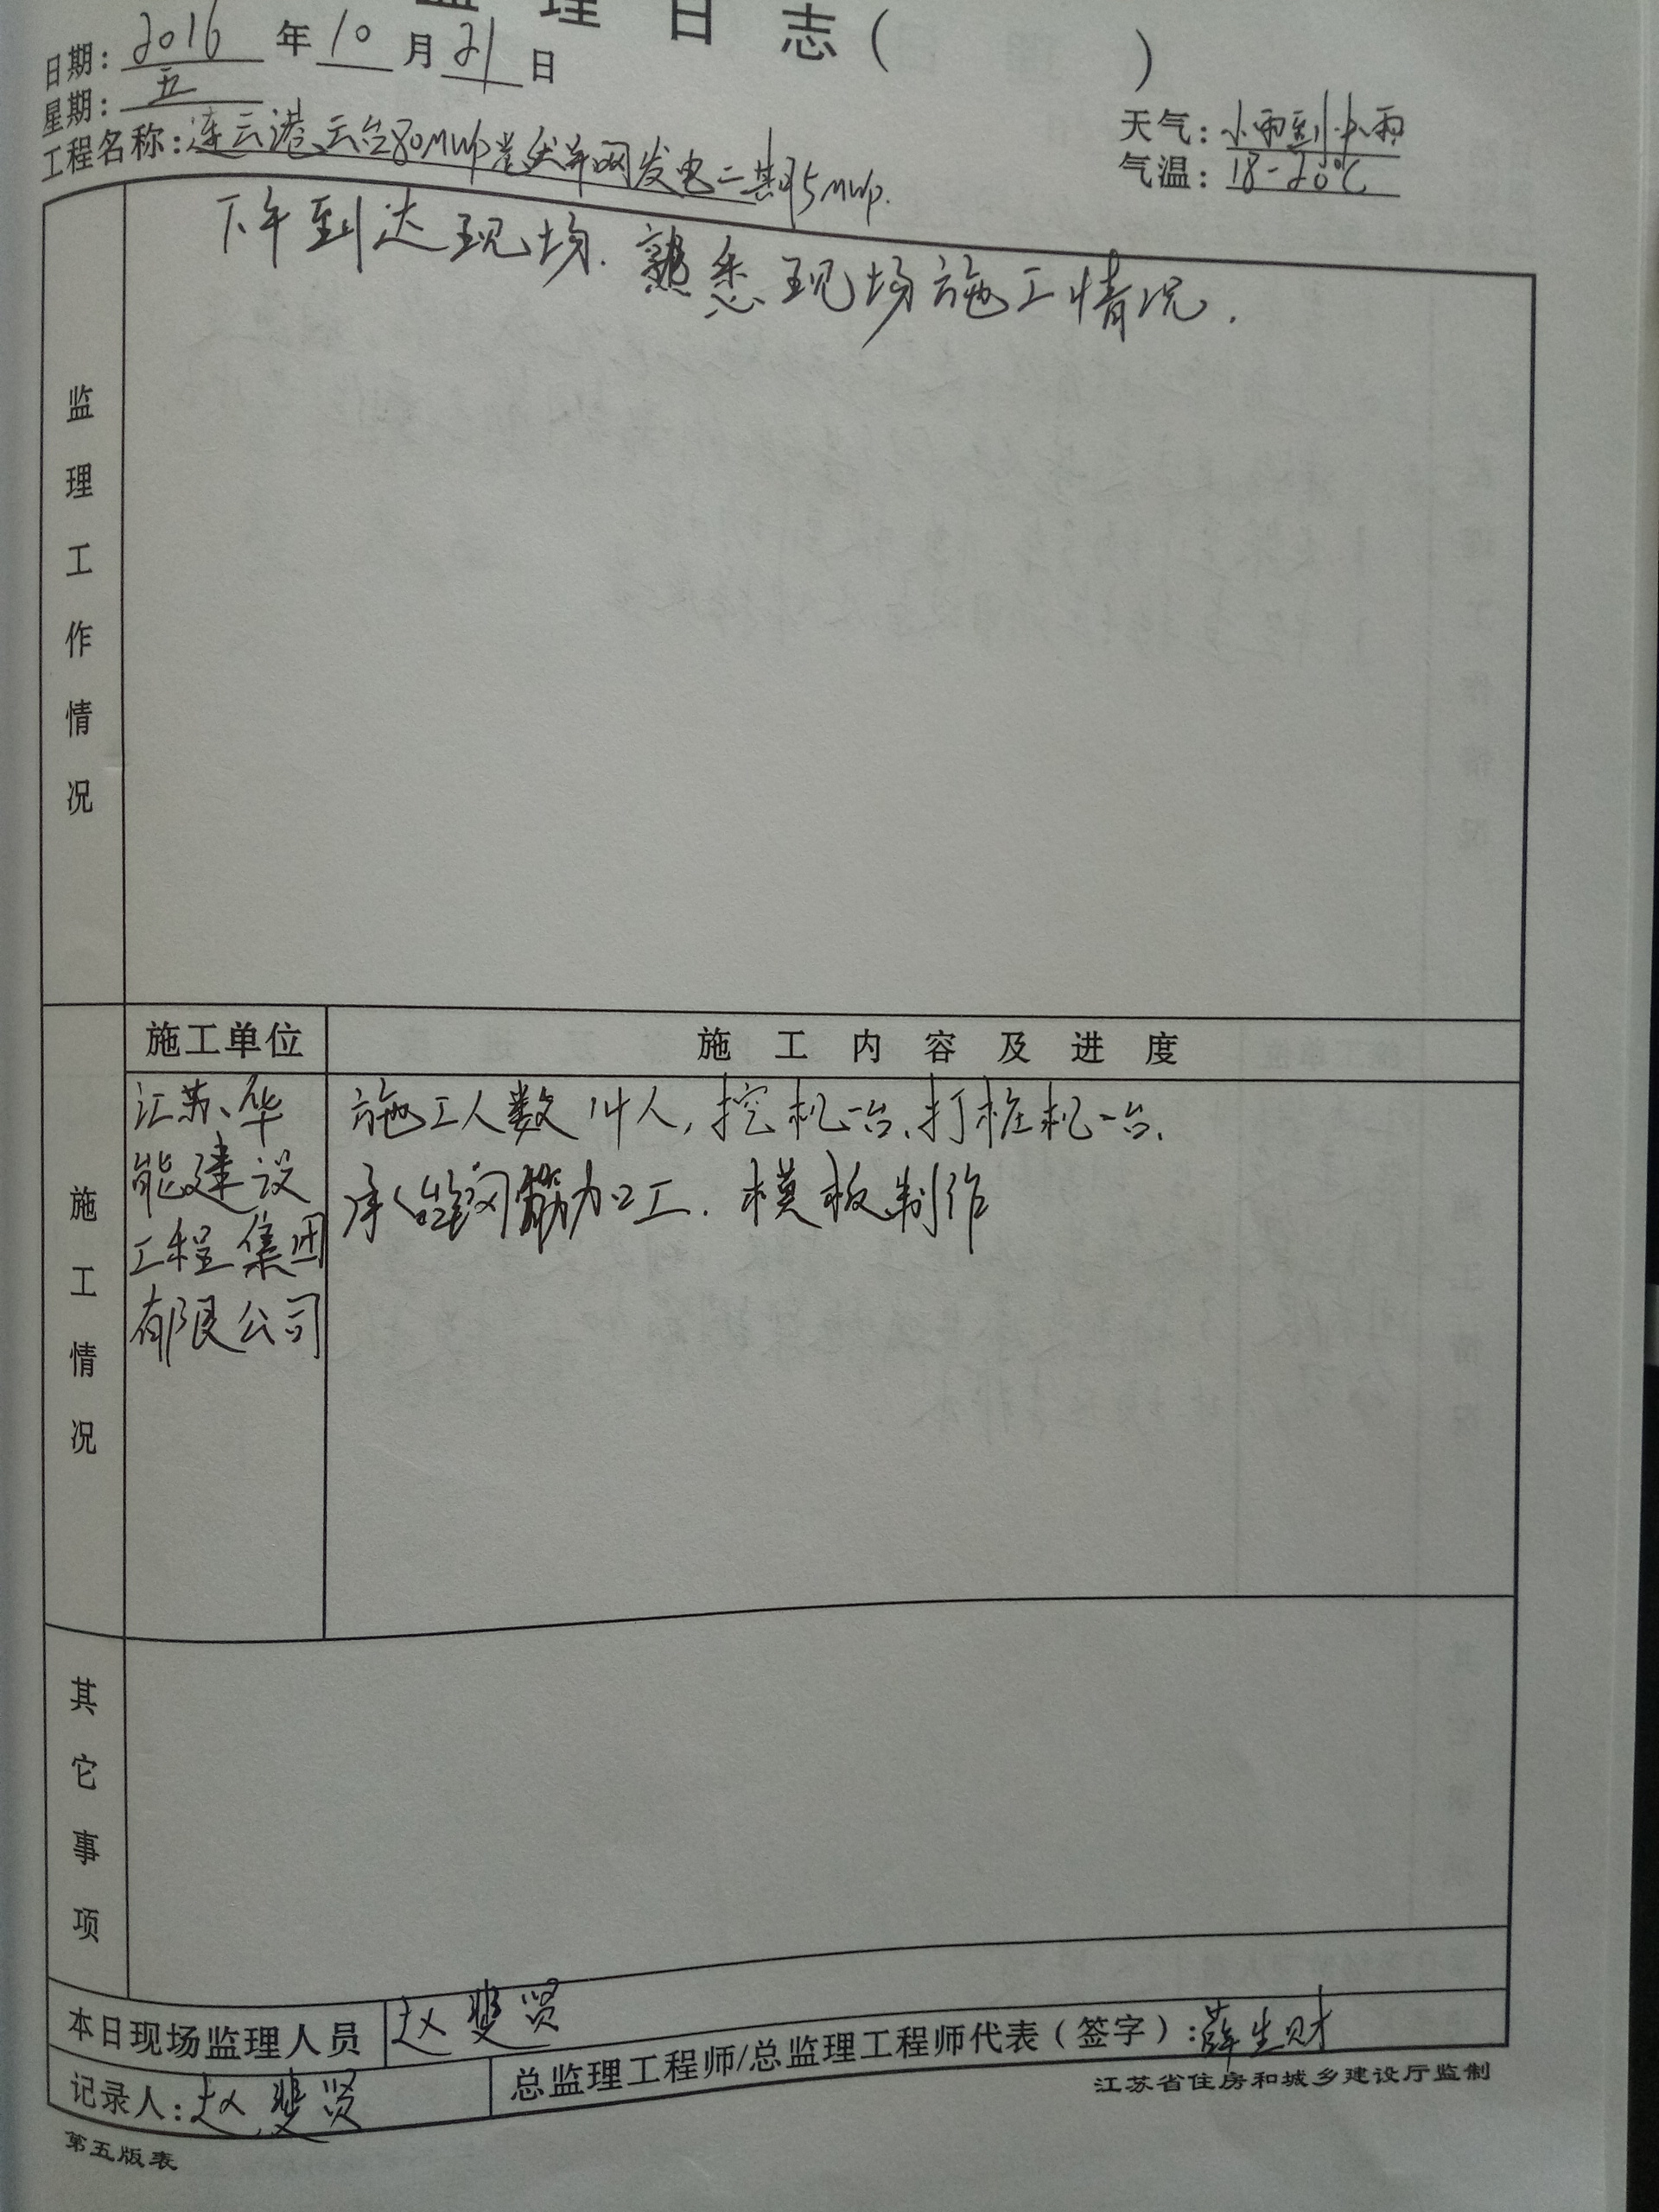 监理日志（ ）
日期：2016年10月21日
星期：五
天气：小雨到中雨
工程名称：连云港云台80MWp光伏并网发电二期35MWp.
气温：18-20℃
下午到达现场.熟悉现场施工情况.
监理工作情况
施工单位 施工内容及进度
江苏华 施工人数14人,挖机一台、打桩机一台、
能建设 承台钢筋加工.模板制作
工程集团
有限公司
施工情况
其它事项
本日现场监理人员 赵斐贤
记录人：赵斐贤 总监理工程师/总监理工程师代表（签字）：薛生财
江苏省住房和城乡建设厅监制
第五版表